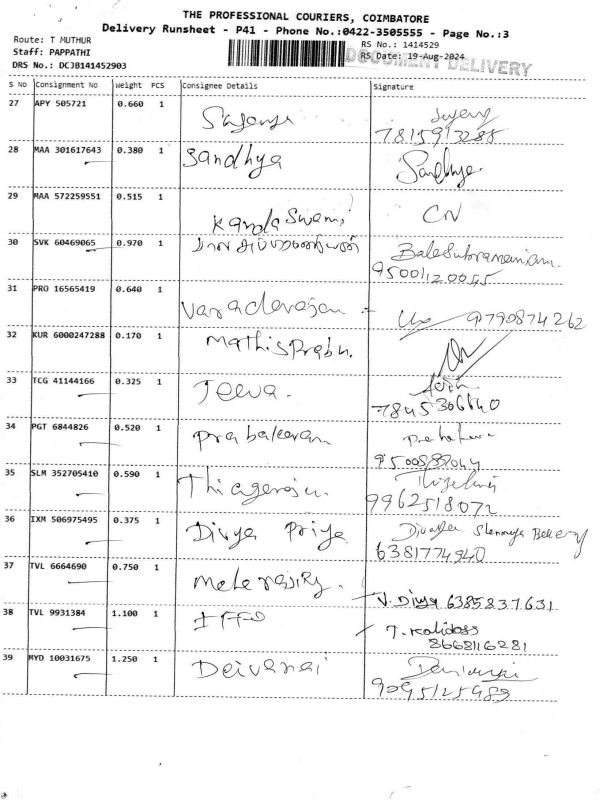 THE PROFESSIONAL COURIERS, COIMBATORE
Delivery Runsheet - P41 - Phone No.:0422-3505555 - Page No.:3
Route: T MUTHUR
RS No.: 1414529
Staff: PAPPATHI
RS Date: 19-Aug-2024
DOCUMENT DELIVERY
DRS No.: DCJB141452903
S NO Consignment No Weight PCS Consignee Details Signature
27 APY 505721 0.660 1
7815913288
28 MAA 301617643 0.380 1 Sandhya Sandhya
29 MAA 572259551 0.515 1 Kandaswami
30 SVK 60469065 0.970 1 பாலசுப்பிரமணியன் Balasubramaniam.
31 PRO 16565419 0.640 1 Varadarajan 9790874262
32 KUR 6000247288 0.170 1 MathisPrabu.
33 TCG 41144166 0.325 1 Jeeva.
7845306640
34 PGT 6844826 0.520 1 Prabakaran
35 SLM 352705410 0.590 1 Thiagaraju.
9962518072
36 IXM 506975495 0.375 1 Divya Priya
6381774940
37 TVL 6664690 0.750 1
V. Divya 6385837631
38 TVL 9931384 1.100 1 IFFO T. Kalidoss
8668116281
39 MYD 10031675 1.250 1 Deivanai
9095125989